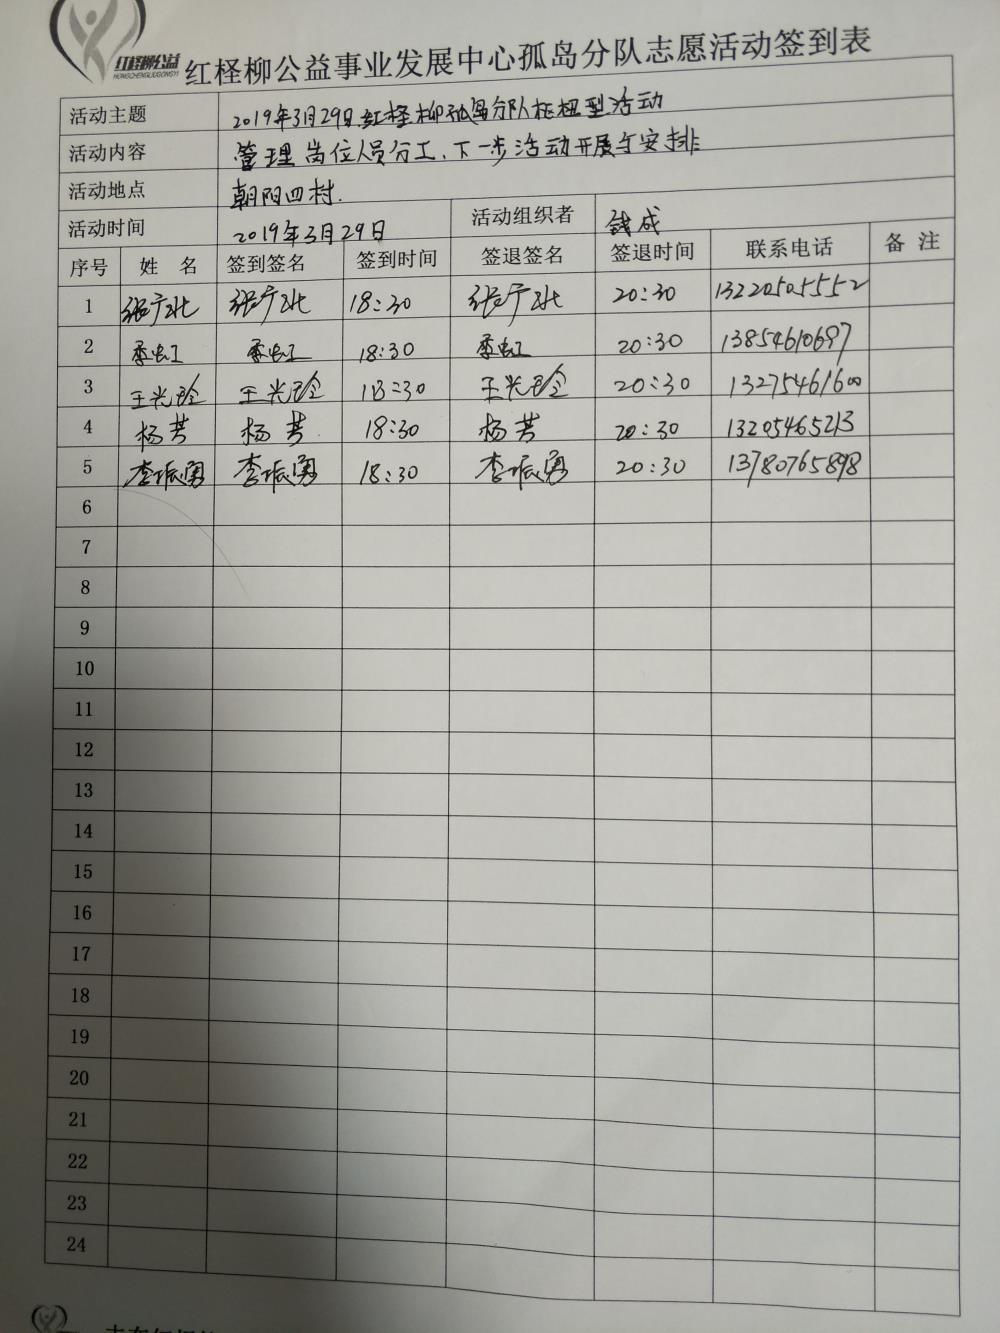 红柽柳公益
HONGCHENGLIUGONGYI
红柽柳公益事业发展中心孤岛分队志愿活动签到表
活动主题 2019年3月29日红柽柳孤岛分队枢纽型活动
活动内容 管理岗位人员分工、下一步活动开展与安排
活动地点 朝阳四村.
活动时间 2019年3月29日 活动组织者 钱成
序号 姓名 签到签名 签到时间 签退签名 签退时间 联系电话 备注
1 张广北 张广北 18:30 张广北 20:30 13220505552
2 季虹 季虹 18:30 季虹 20:30 13854610697
3 王光玲 王光玲 18:30 王光玲 20:30 13275461600
4 杨芳 杨芳 18:30 杨芳 20:30 13205465213
5 李振勇 李振勇 18:30 李振勇 20:30 13780765898
6
7
8
9
10
11
12
13
14
15
16
17
18
19
20
21
22
23
24